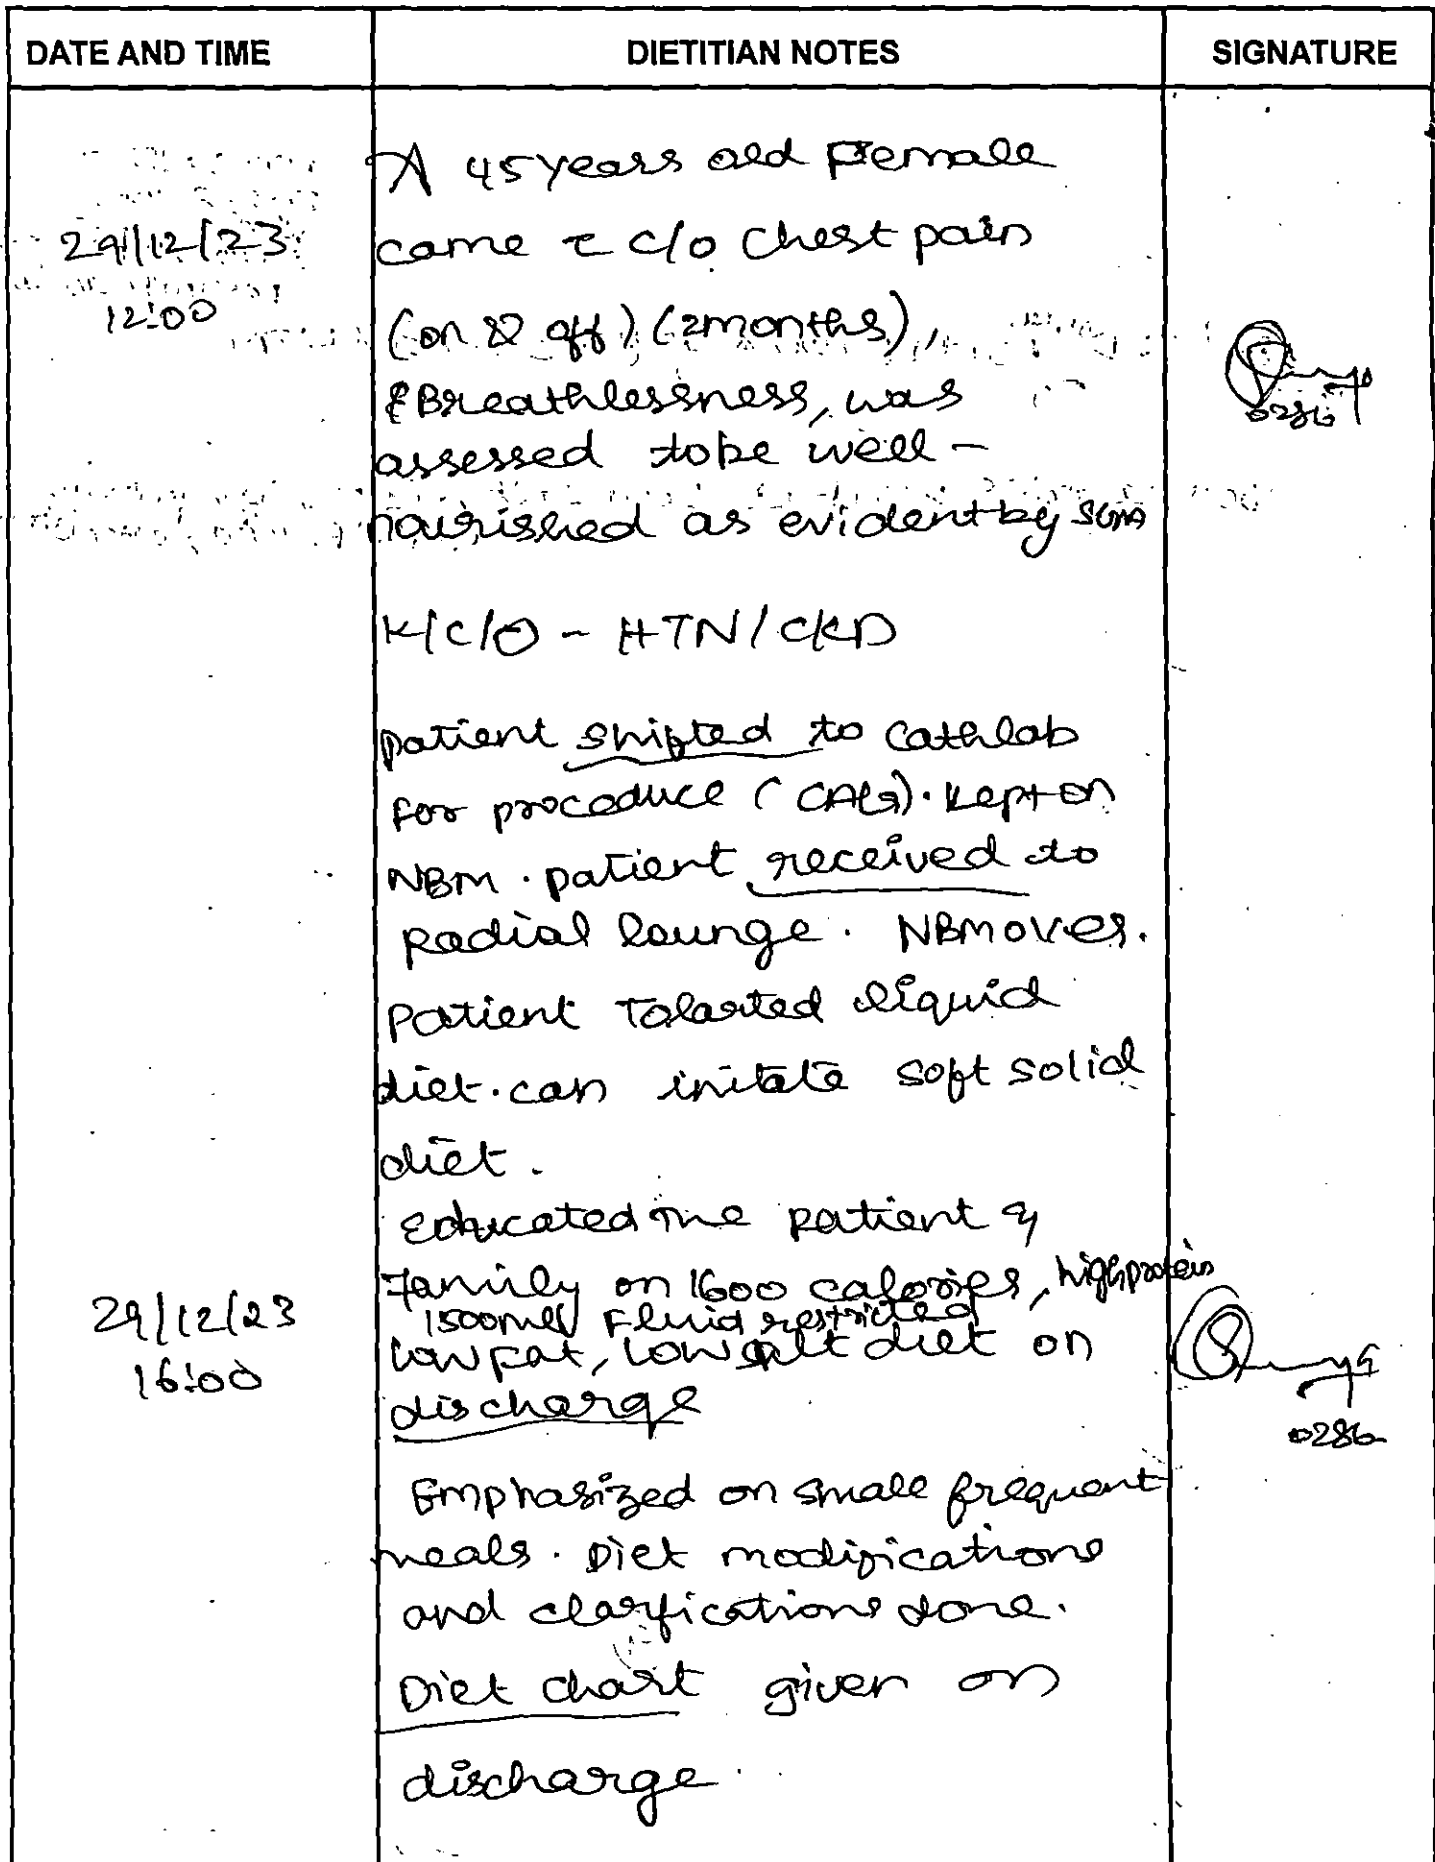 DATE AND TIME DIETITIAN NOTES SIGNATURE
A 45 years old Female
29/12/23 came c̄ c/o Chest pain
12:00 (on & off) (2months),
& Breathlessness, was
0286
assessed to be well-
nourished as evident by SGA
K/C/O - HTN/CKD
patient shifted to Cathlab
For procedure (CAG). Kept on
NBM. patient received to
Radial lounge. NBM over.
Patient Tolarted liquid
diet. can initate soft solid
diet.
Educated the patient &
family on 1600 calories, high protein
29/12/23 1500ml Fluid restricted
low fat, low salt diet on
16:00
discharge
0286
Emphasized on small frequent
meals. Diet modifications
and clarfications done.
Diet chart given on
discharge.